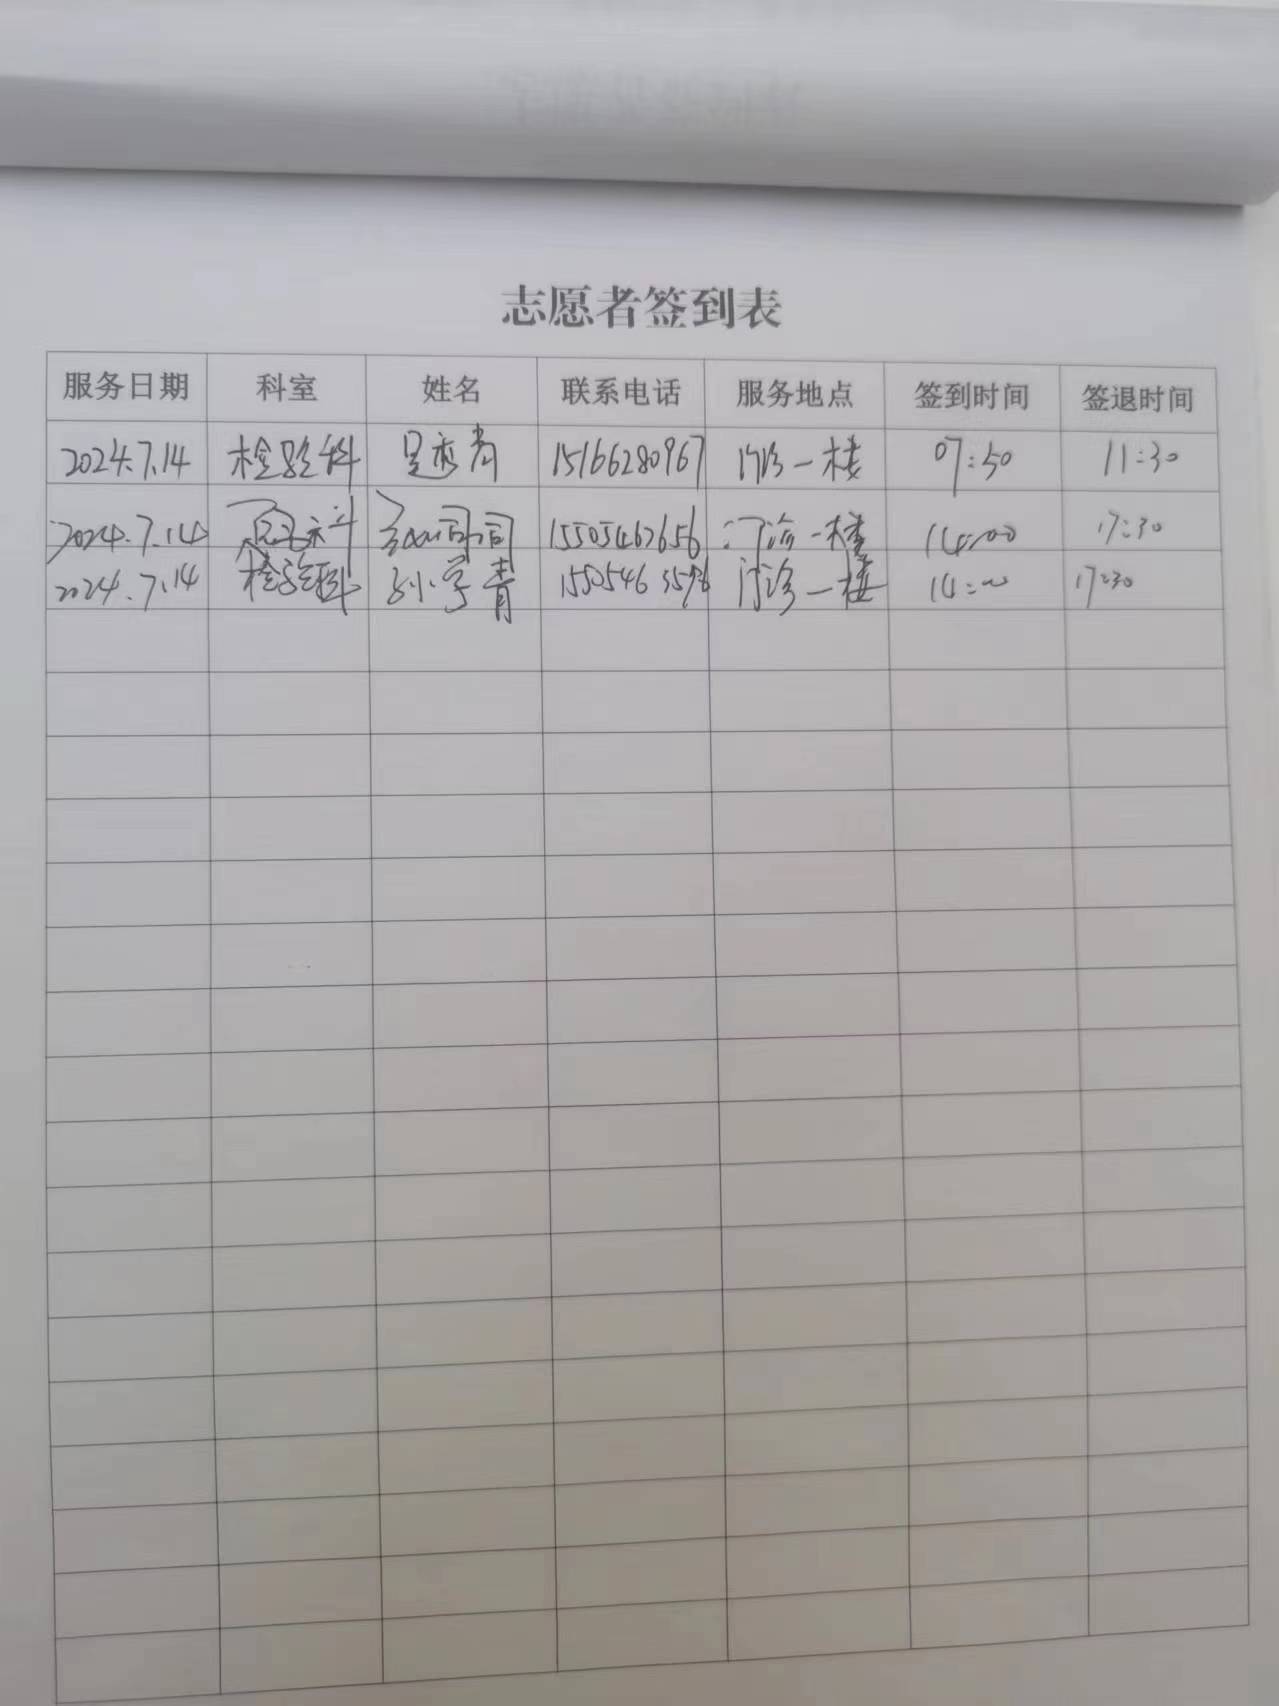 志愿者签到表
服务日期 科室 姓名 联系电话 服务地点 签到时间 签退时间
2024.7.14 检验科 15166280967 门诊一楼 07:50 11:30
2024.7.14 15505462656 门诊一楼 14:00 17:30
2024.7.14 检验科 孙小学青 门诊一楼 14:00 17:30